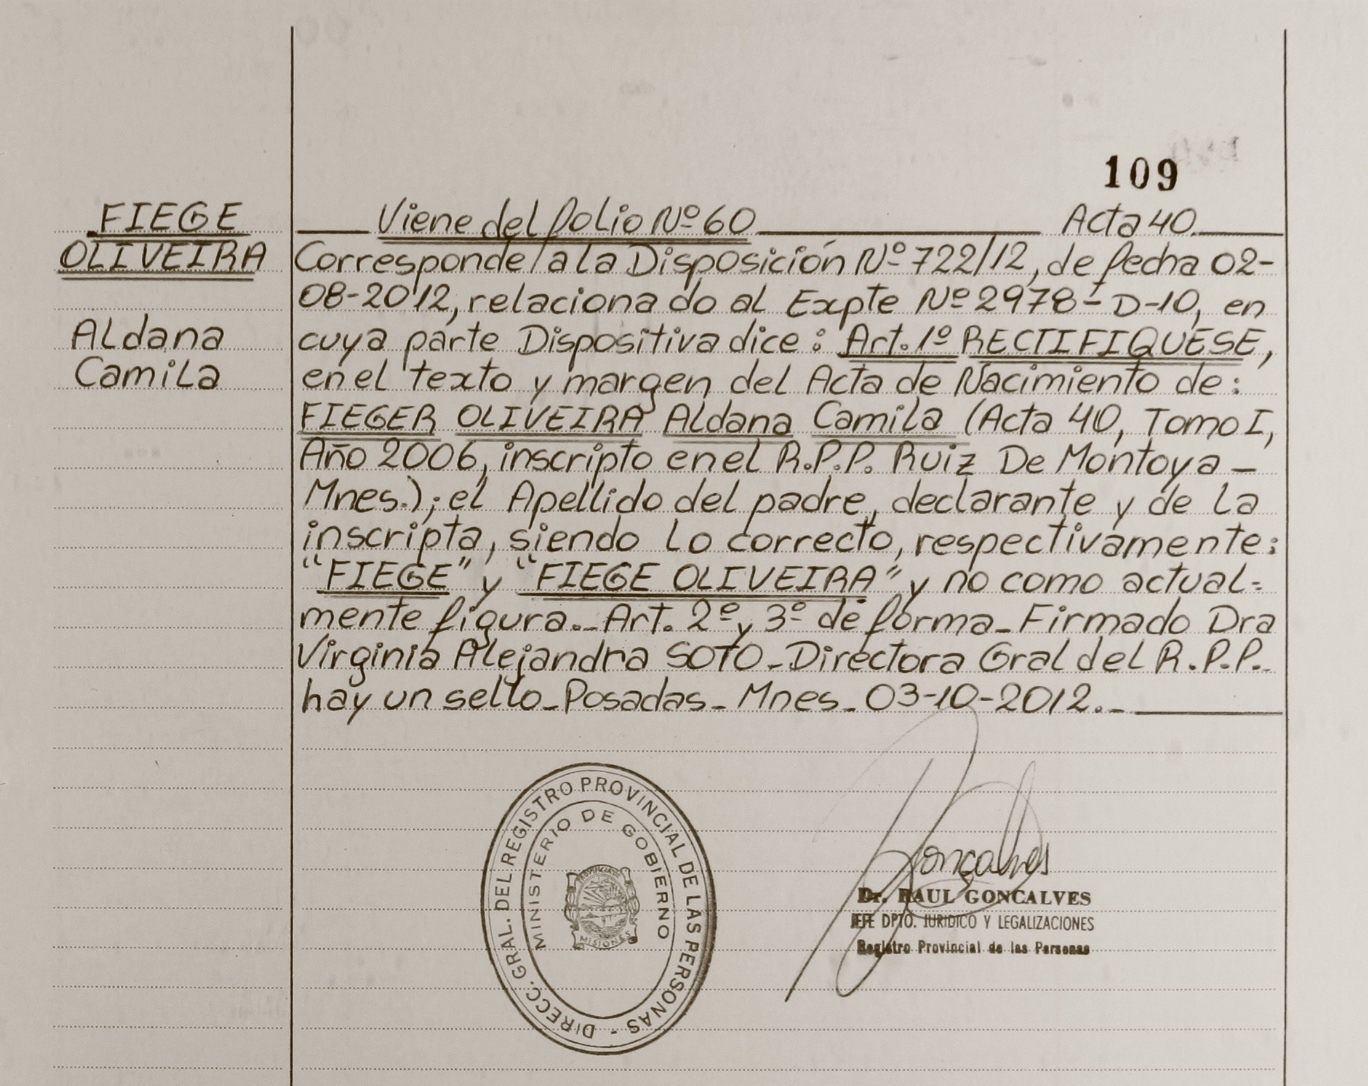 109
FIEGE
OLIVEIRA
Aldana
Camila
Viene del folio Nº 60 Acta 40.
Corresponde/a la Disposición Nº 722/12, de fecha 02-
08-2012, relacionado al Expte Nº 2978-D-10, en
cuya parte Dispositiva dice: Art. 1º RECTIFIQUESE,
en el texto y margen del Acta de Nacimiento de:
FIEGER OLIVEIRA Aldana Camila (Acta 40, Tomo I,
Año 2006, inscripto en el R.P.P. Ruiz De Montoya –
Mnes.); el Apellido del padre, declarante y de la
inscripta, siendo lo correcto, respectivamente:
"FIEGE" y "FIEGE OLIVEIRA" y no como actual-
mente figura.- Art. 2º y 3º de forma- Firmado Dra
Virginia Alejandra SOTO- Directora Gral del R.P.P.
hay un sello- Posadas- Mnes- 03-10-2012.-
DIRECC. GRAL. DEL REGISTRO PROVINCIAL DE LAS PERSONAS -
MINISTERIO DE GOBIERNO
MISIONES
Goncalves
Dr. RAUL GONCALVES
JEFE DPTO. JURIDICO Y LEGALIZACIONES
Registro Provincial de las Personas